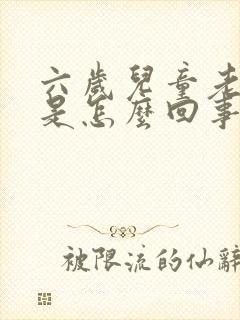 六歲兒童老
是怎麼回事
被限流的仙辭